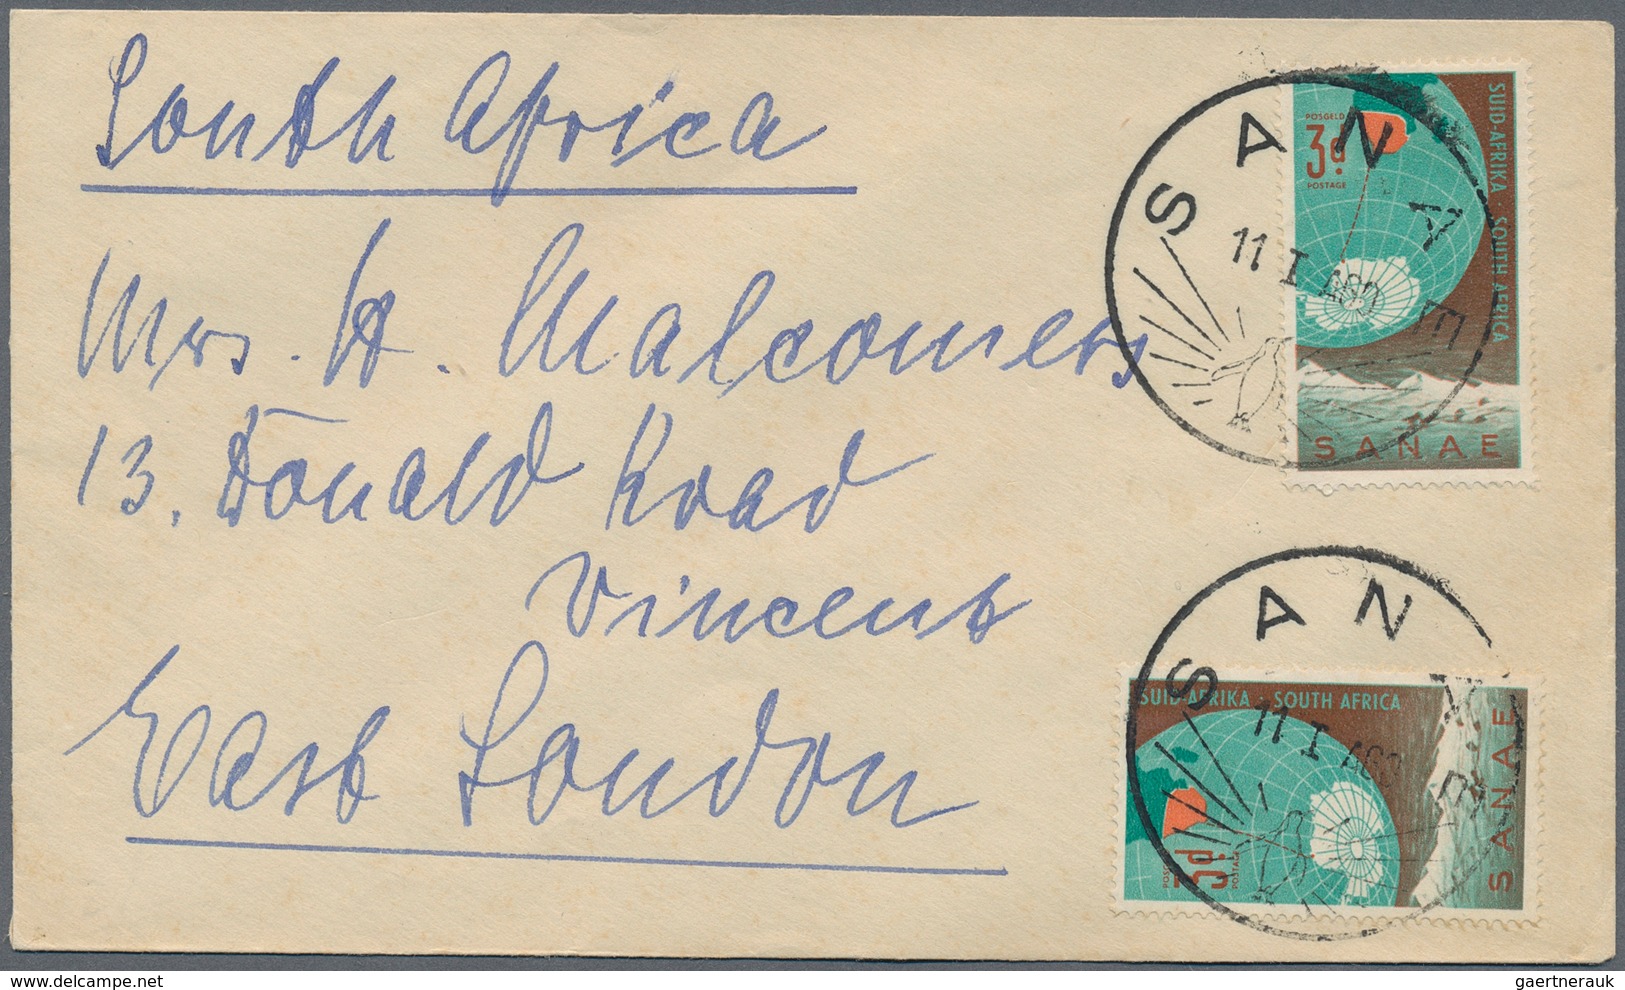 South Africa
Mrs. H. Malcomess
13, Donald Road
Vincent
East London
SANAE
11 I 1960
POSGELD
3d
POSTAGE
SUID-AFRIKA · SOUTH AFRICA
SANAE
SANAE
11 I 1960
SUID-AFRIKA · SOUTH AFRICA
POSGELD
3d
POSTAGE
SANAE
www.delcampe.net
gaertnerauk